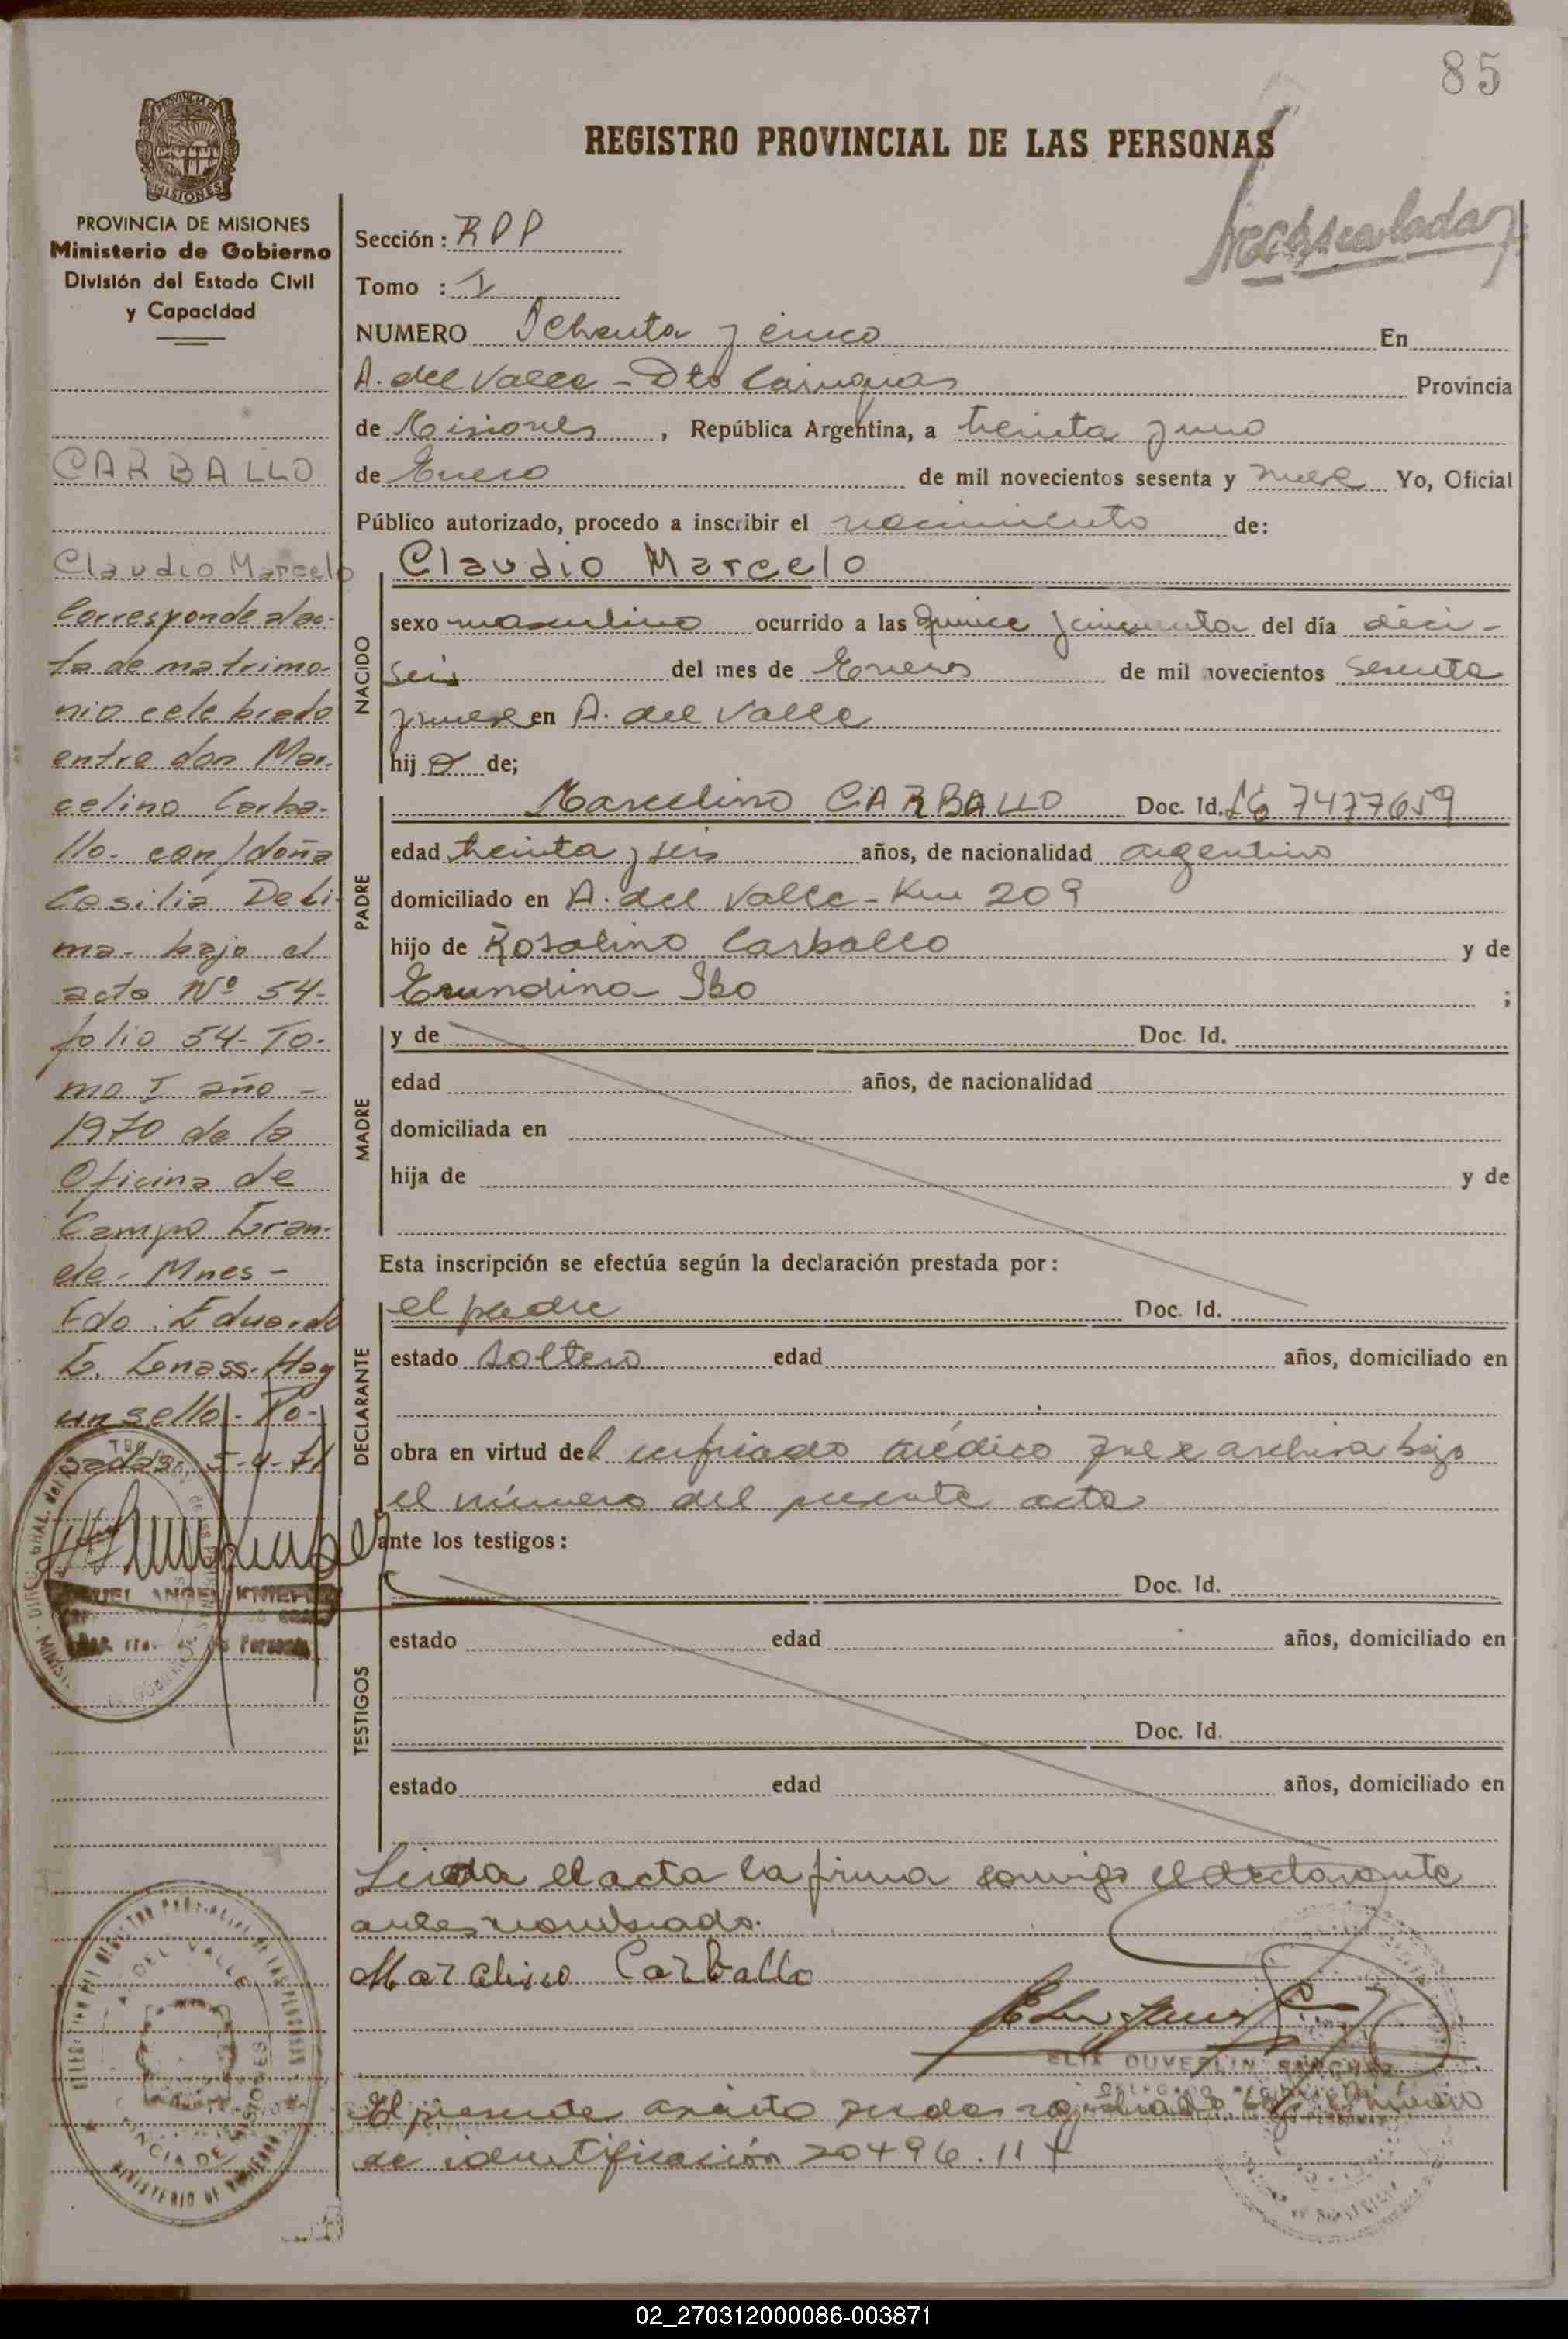 85
REGISTRO PROVINCIAL DE LAS PERSONAS
PROVINCIA DE MISIONES
Ministerio de Gobierno
División del Estado Civil
y Capacidad
CARBALLO
Claudio Marcelo
Corresponde al ac-
ta de matrimo-
nio celebrado
entre don Mar-
celino Carba-
llo - con/doña
Casilia De Li-
ma - bajo el
acta Nº 54-
folio 54 - To-
mo I año -
1970 de la
Oficina de
Campo Gran-
de - Mnes -
Fdo: Eduardo
Hay
un sello - Po-
sadas, 5-4-71
Sección: RPP
Tomo : 1
NUMERO Ochenta y cinco En
A. del Valle - Dto Cainguas Provincia
de Misiones, República Argentina, a treinta y uno
de Enero de mil novecientos sesenta y nueve Yo, Oficial
Público autorizado, procedo a inscribir el nacimiento de:
NACIDO
Claudio Marcelo
sexo masculino ocurrido a las quince y cincuenta del día dieci-
seis del mes de Enero de mil novecientos sesenta
y nueve en A. del Valle
hijo de;
PADRE
Marcelino CARBALLO Doc. Id. 7477659
edad treinta y seis años, de nacionalidad argentino
domiciliado en A. del Valle - Km 209
hijo de Rosalino Carballo y de
Erundina ;
MADRE
y de Doc. Id.
edad años, de nacionalidad
domiciliada en
hija de y de
Esta inscripción se efectúa según la declaración prestada por:
DECLARANTE
el padre Doc. Id.
estado soltero edad años, domiciliado en
obra en virtud del certificado médico que se archiva bajo
el número del presente acta
ante los testigos:
TESTIGOS
Doc. Id.
estado edad años, domiciliado en
Doc. Id.
estado edad años, domiciliado en
Leida el acta la firma conmigo el declarante
antes nombrado.
Marcelino Carballo
SANCHEZ
El presente
de identificación 20496.11
A. DEL VALLE
02_270312000086-003871